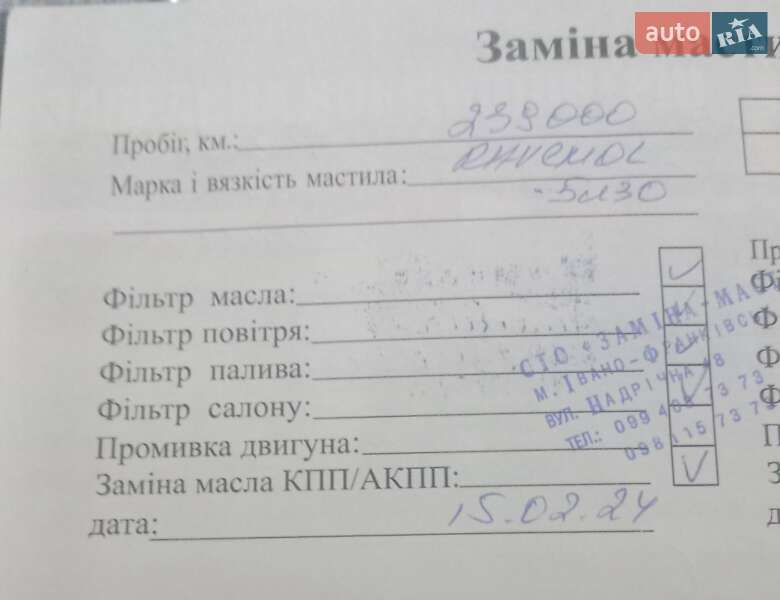 auto RIA .com
Заміна масти
Пробіг, км.: 239000
Марка і вязкість мастила:
5w30
Фільтр масла:
Фільтр повітря:
Фільтр палива:
Фільтр салону:
Промивка двигуна:
Заміна масла КПП/АКПП:
дата: 15.02.24
СТО «ЗАМІНА-МА
М. ІВАНО-ФРАНКІВС
ВУЛ. НАДРІЧНА 48
ТЕЛ.: 099 408 73 73
098 115 73 7
Пр
Фі
Ф
Ф
Ф
П
З
д